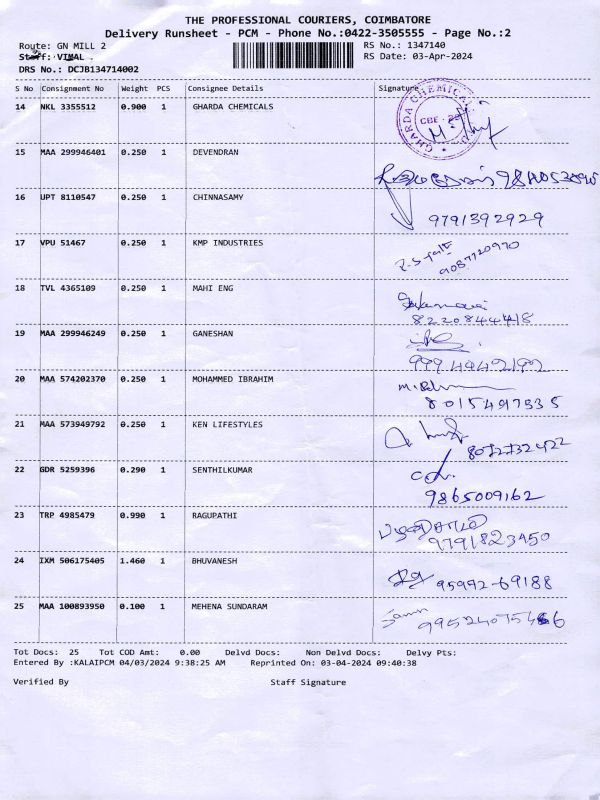 THE PROFESSIONAL COURIERS, COIMBATORE
Delivery Runsheet - PCM - Phone No.:0422-3505555 - Page No.:2
Route: GN MILL 2 RS No.: 1347140
Staff: VIMAL RS Date: 03-Apr-2024
DRS No.: DCJB134714002
S No Consignment No Weight PCS Consignee Details Signature
14 NKL 3355512 0.900 1 GHARDA CHEMICALS
GHARDA CHEMICAL
CBE
15 MAA 299946401 0.250 1 DEVENDRAN
16 UPT 8110547 0.250 1 CHINNASAMY
9791392929
17 VPU 51467 0.250 1 KMP INDUSTRIES
9087720970
18 TVL 4365109 0.250 1 MAHI ENG
8220844418
19 MAA 299946249 0.250 1 GANESHAN
20 MAA 574202370 0.250 1 MOHAMMED IBRAHIM
8015497535
21 MAA 573949792 0.250 1 KEN LIFESTYLES
8072732422
22 GDR 5259396 0.290 1 SENTHILKUMAR
9865009162
23 TRP 4985479 0.990 1 RAGUPATHI
9791823450
24 IXM 506175405 1.460 1 BHUVANESH
95992-69188
25 MAA 100893950 0.100 1 MEHENA SUNDARAM
Tot Docs: 25 Tot COD Amt: 0.00 Delvd Docs: Non Delvd Docs: Delvy Pts:
Entered By :KALAIPCM 04/03/2024 9:38:25 AM Reprinted On: 03-04-2024 09:40:38
Verified By Staff Signature